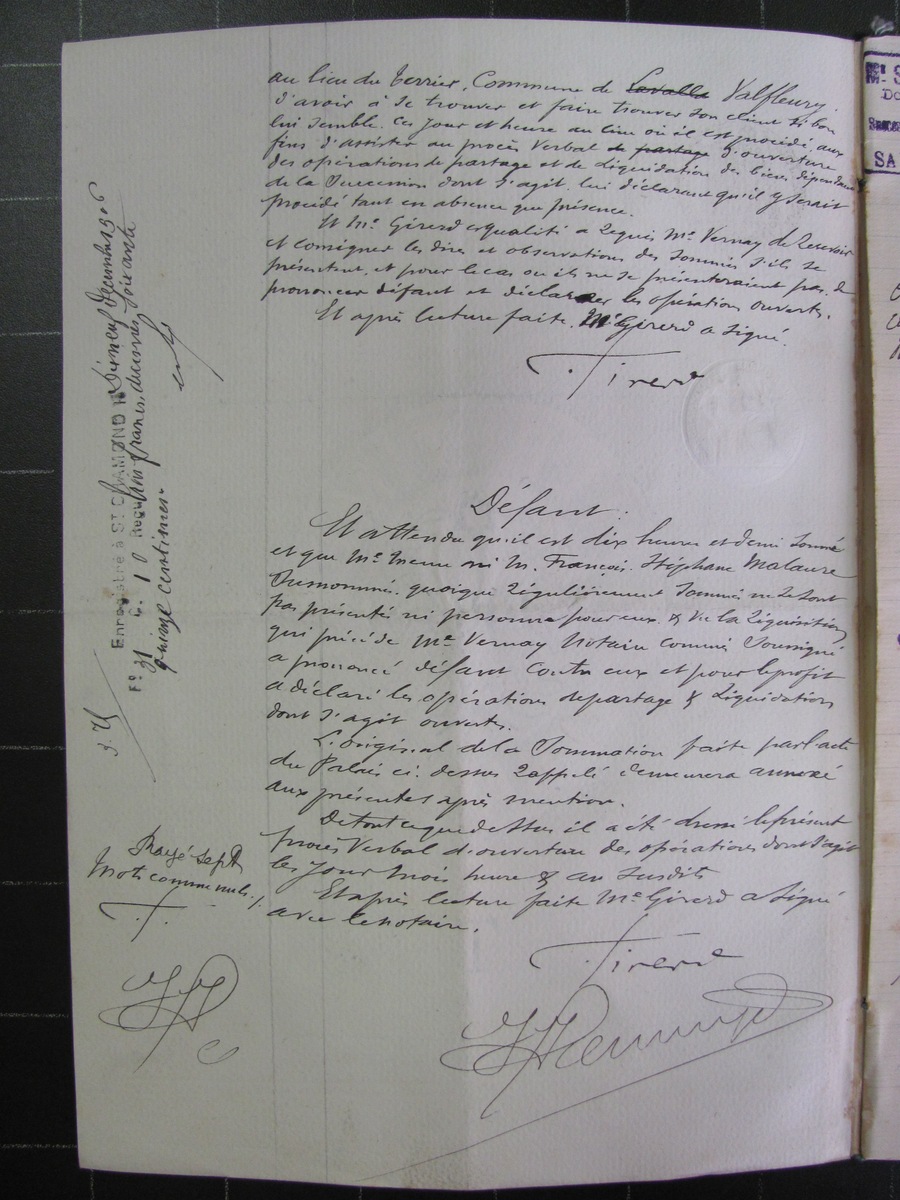 au lieu du Terrier, Commune de Lavalla Valfleury.
d'avoir à se trouver et faire trouver son client si bon
lui semble. Ces jour et heure au lieu où il est procédé, aux
fins d'assister au procès verbal de partage d'ouverture
des opérations de partage et de liquidation des biens dépendant
de la succession dont s'agit. lui déclarant qu'il y serait
procédé tant en absence que présence.
Et Me Girerd esqualité a requis Me Vernay de recevoir
et consigner les dires et observations des sommés s'ils se
présentent, et pour le cas où ils ne se présenteraient pas, de
prononcer défaut et déclarer les opérations ouvertes.
Et après lecture faite, Me Girerd a signé.
Girerd
Défaut :
Et attendu qu'il est dix heure et demi sonné
et que Me ni M. François Stéphane Malaure
susnommé, quoique régulièrement sommés ne se sont
pas présentés ni personne pour eux, & vu la réquisition
qui précède Me Vernay Notaire commis soussigné
a prononcé défaut contre eux et pour le profit
a déclaré les opérations de partage & liquidation
dont s'agit ouvertes.
L'original de la sommation faite par acte
du Palais ci-dessus rappelé demeurera annexé
aux présentes après mention.
De tout ce que dessus il a été dressé le présent
procès verbal d'ouverture des opérations dont s'agit
les jour mois heure & an susdits
Et après lecture faite Me Girerd a signé
avec le notaire.
Girerd
Rayé sept
mots comme nuls ./.
Enregistré à ST CHAMOND le dixneuf Décembre 1906
F° 31 C. 10 Reçu francs, décimes soixante
quinze centimes
3.75
Mr S
SA